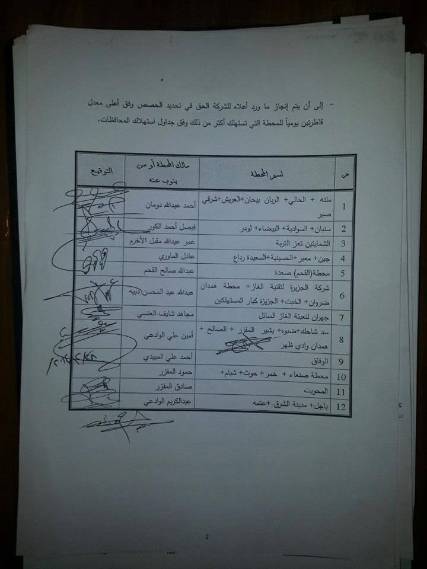 - إلى أن يتم إنجاز ما ورد أعلاه للشركة الحق في تحديد الحصص وفق أعلى معدل
قاطرتين يومياً للمحطة التي تستهلك أكثر من ذلك وفق جداول استهلاك المحافظات.
اسم المحطة مالك المحطة أو من ينوب عنه التوقيع
1 + الحالي + الويان بيحان+العريش+شرقي صبر أحمد عبدالله دومان
2 سنبان + السوادية+ البيضاء+ لودر فيصل أحمد الكور
3 الشمايتين تعز التربة عمير عبدالله مقبل
4 + معبر+ الحسينية+السعيدة رداع عادل الماوري
5 محطة(الفحم) صعدة عبدالله صالح الفحم
6 شركة الجزيرة لتقنية الغاز+ محطة همدان ضروان+ الخبت+ الجزيرة كبار المستهلكين عبدالله عبد المحسن
7 جهران لتعبئة الغاز السائل مجاهد شايف العنسي
8 سد شاحك+ضبوه+ بشير المقزر + الصالح + همدان وادي ظهر أمين علي الوادعي
9 الوفاق أحمد علي العبيدي
10 محطة صنعاء + خمر+ حوث+ شبام+ حمود المقزر
11 المحويت صادق المقزر
12 باجل+ مدينة الشرق +عتمه عبدالكريم الوادعي